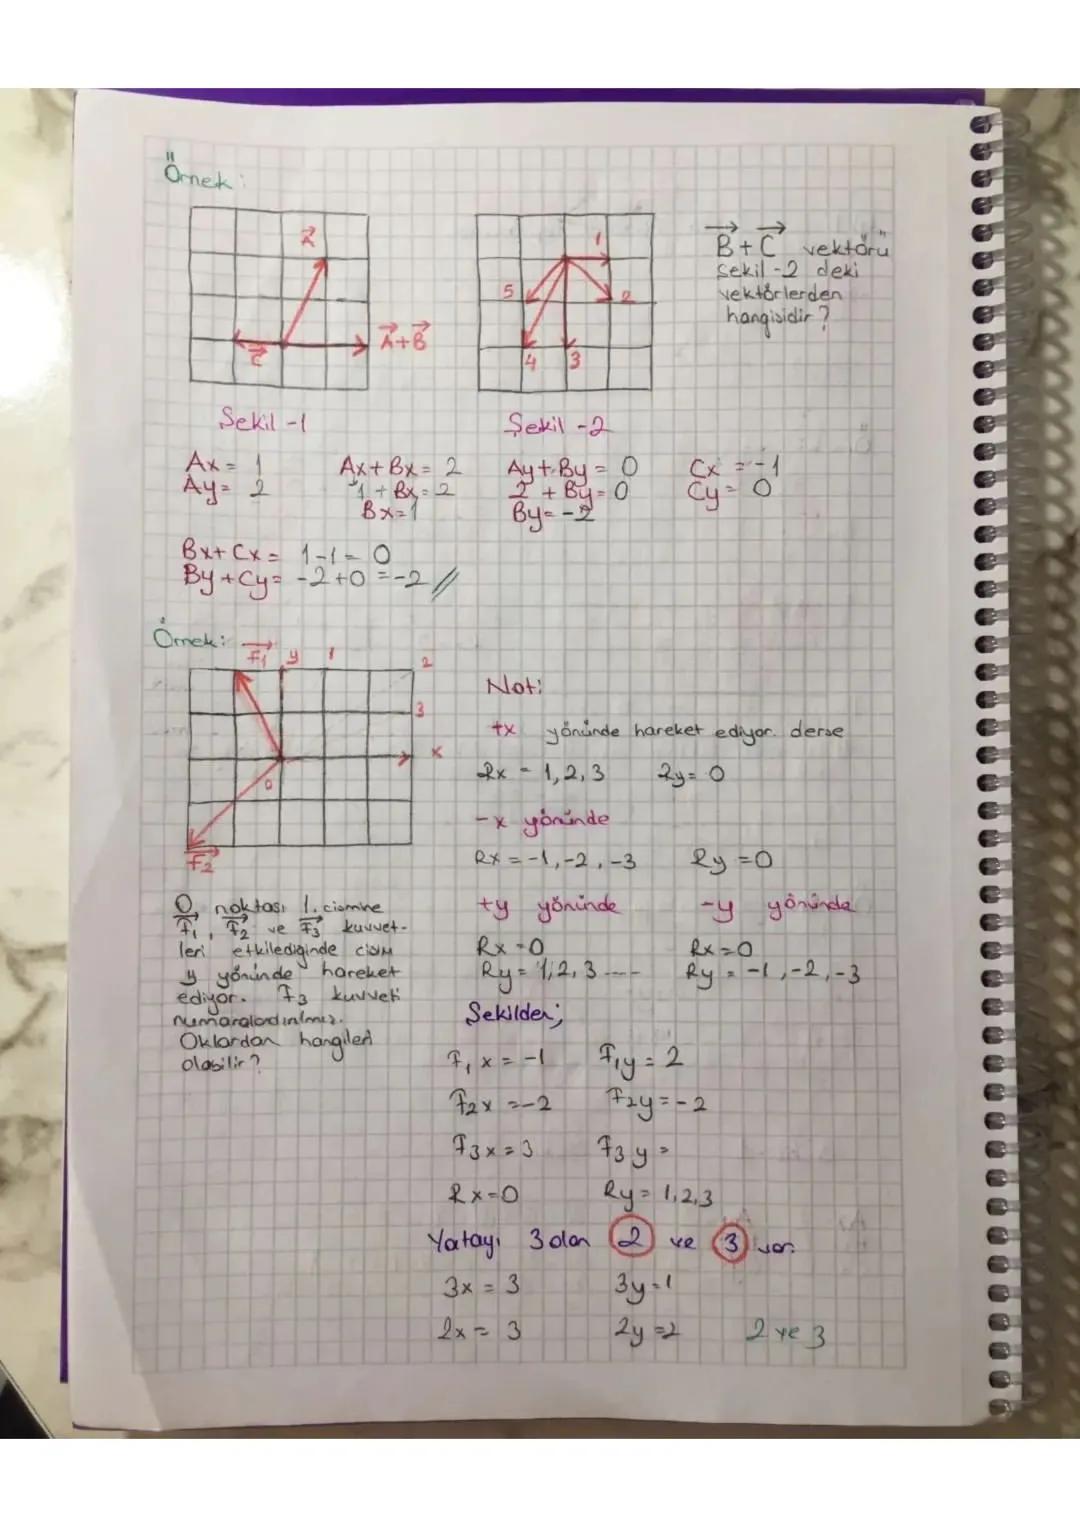 Örnek:
A
C
A+B
Şekil -1
1
2
3
4
5
Şekil -2
B + C vektörü
Şekil -2 deki
vektörlerden
hangisidir?
Ax = 1
Ay = 2
Ax + Bx = 2
1 + Bx = 2
Bx = 1
Ay + By = 0
2 + By = 0
By = -2
Cx = -1
Cy = 0
Bx + Cx = 1-1 = 0
By + Cy = -2+0 = -2 //
Örnek:
F1 y 1 2
3
x
0
F2
O noktası 1. cismine
F1, F2 ve F3 kuvvet-
leri etkilediğinde cisim
y yönünde hareket
ediyor. F3 kuvveti
numaralandırılmış.
Oklardan hangileri
olabilir?
Not:
+x yönünde hareket ediyor. derse
Rx = 1, 2, 3 Ry = 0
-x yönünde
Rx = -1, -2, -3 Ry = 0
+y yönünde
Rx = 0
Ry = 1, 2, 3 ----
-y yönünde
Rx = 0
Ry = -1, -2, -3
Şekilden;
F1 x = -1 F1y = 2
F2x = -2 F2y = -2
F3x = 3 F3y =
Rx = 0 Ry = 1,2,3
Yatayı 3 olan 2 ve 3 var.
3x = 3 3y = 1
2x = 3 2y = 2 2 ve 3